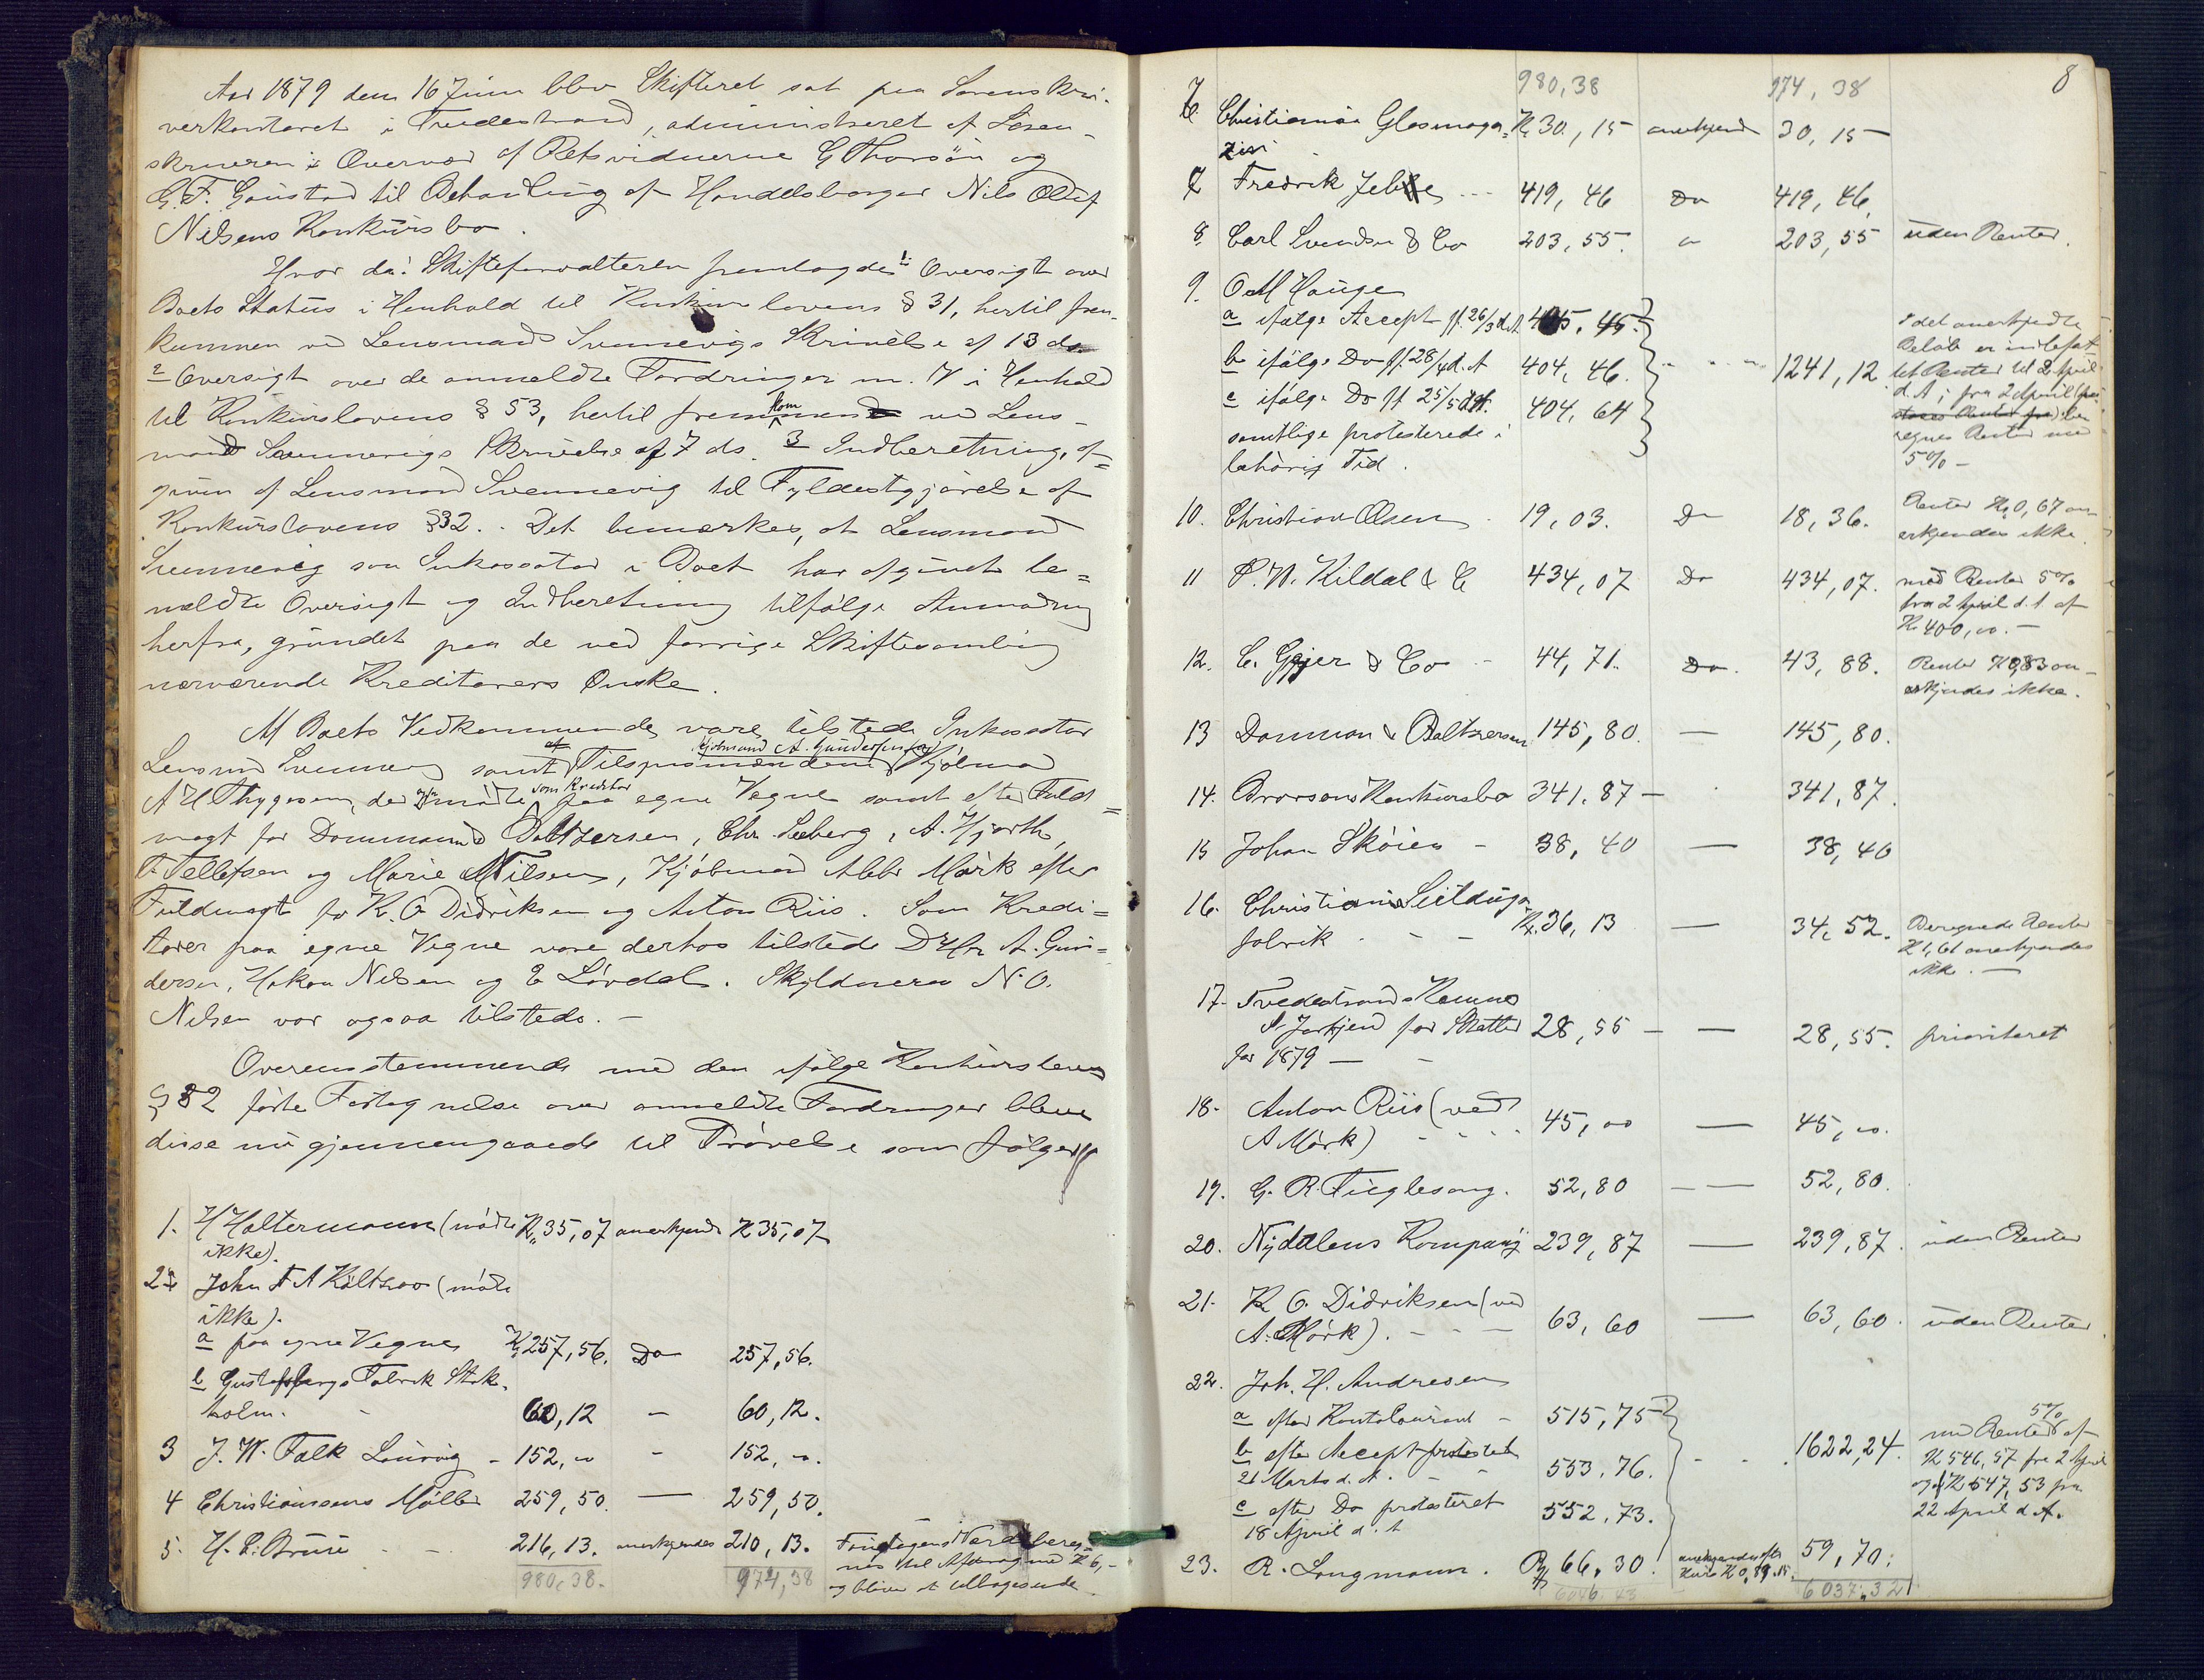 Aar 1879 den 16 Juni blev Skifteret sat paa Sorenskri-
verkontoret i Tvedestrand, administreret af Soren-
skriveren i Overvær af Retsvidnerne G Thorsön og
G. F. Goustad til Behandling af Handelsborger Nils Oluf
Nilsens Konkursbo.
Hvor da: Skifteforvalteren fremlagde 1 Oversigt over
Boets Status i Henhold til Konkurslovens § 31, hertil frem-
kommen ved Lensmand Svennevigs Skrivelse af 13 ds.
2 Oversigt over de anmeldte Fordringer m. V i Henhold
til Konkurslovens § 53, hertil fremkommen ved Lens-
mand Svennevigs Skrivelse af 7 ds. 3 Indberetning, af-
given af Lensmand Svennevig til Fyldestgjørelse af
Konkurslovens § 32. Det bemærkes, at Lensmand
Svennevig som Inkassator i Boet har afgivet be=
meldte Oversigt og Indberetning tilfølge Anmodning
herfra, grundet paa de ved forrige Skiftesamling
nærværende Kreditorers Ønske.
Af Boets Vedkommende vare tilstede Inkassator
Lensmd Svennevig samt af Tilsynsmændene Kjøbmand A. Gundersen og Kjøbmand
A H Thygesen, der mødte som Kreditor paa egne Vegne samt efter Fuld=
magt for Dommann & Baltzersen, Chr. Seeberg, A. Hjorth,
T. Tellefsen og Marie Nilsen, Kjøbmand Abbr Mørk efter
Fuldmagt for K. O Didriksen og Anton Riis. Som Kredi=
torer paa egne Vegne vare derhos tilstede DHrr A. Gun=
dersen, Hakon Nilsen og E Løvdal. Skyldneren N. O.
Nilsen var ogsaa tilstede. -
Overensstemmende med den ifølge Konkurslovens
§ 82 førte Fortegnelse over anmeldte Fordringer bleve
disse nu gjennemgaaede til Prøvelse som følger
1. H Haltermann (mødte Kr 35,07 anerkjendt Kr 35,07
ikke).
2. John F A Költzow (mødte
ikke).
a paa egne Vegne Kr 257,56. Do 257,56.
b Gustafsbergs Fabrik Stok-
holm. - 60,12 - 60,12.
3 J. W. Falk Laurvig - 152,00 - 152,00.
4 Christiansens Mølle 259,50. - 259,50.
5. H. C. Bruse - - 216,13. anerkjendes 210,13. Fustagens Værd bereg-
nes til Afdrag med Kr 6,-
og bliver at tilbagesende
980,38. 974,38
8
980,38 974,38
6. Christiania Glasmaga- Kr 30,15 anerkjend 30,15
zin
7 Fredrik Jebe - - 419,46 Do 419,46
8. Carl Svendsen & Co 203,55. " 203,55 uden Renter.
9. O M Hauge
a ifølge Accept ff 26/3 d. A. 405,45.
b ifølge Do ff 28/4 d. A 404,46. - - 1241,12
c ifølge Do ff 25/5 d. A. 404,64
samtlige protesterede i
behørig Tid.
I det anerkjendte
Beløb er indbefat-
tet Renter til 2 April
d. A; fra 2 April be-
regnes Renter med
5% -
10. Christian Olsen - 19,03. Do 18,36. Renter Kr 0,67 an-
erkjendes ikke.
11 P. W. Kildal & C 434,07 Do 434,07. med Renter 5%
fra 2 April d. A. af
Kr 400,00. -
12. C. Geijer & Co - 44,71. Do. 43,88. Renter Kr 0,83 an-
erkjendes ikke.
13 Dommann & Baltzersen 145,80. — 145,80.
14. Brorsons Konkursbo 341,87 - 341,87.
15 Johan Skøien - 38,40 — 38,40
16. Christiania Seildugs
fabrik - - Kr. 36,13 — 34,52. Beregnede Renter
Kr 1,61 anerkjendes
ikke. -
17. Tvedestrands Kemner
S. Jerkjend for Skatter 28,55 - — 28,55. prioriteret
for 1879 — -
18. Anton Riis (ved
A Mørk) - - - 45,00 — 45,00.
19. G. R. Fuglesang. 52,80 — — 52,80.
20. Nydalens Kompagni 239,87 — 239,87. uden Renter
21. K O. Didriksen (ved
A. Mørk). - - - 63,60 — 63,60. uden Renter.
22. Joh. H. Andresen
a efter Kontokurant - 515,75
b efter Accept protesteret
21 Marts d. A. - - 553,76. - - 1622,24.
c efter Do protesteret
18 April d. A 552,73.
med Renter 5% af
Kr 546,57 fra 2 April
og af Kr 547,53 fra
22 April d. A.
23. R. Langmann. 66,30. anerkjendes efter
Kurs Kr 0,89. 59,70.
6046.43 6037,32